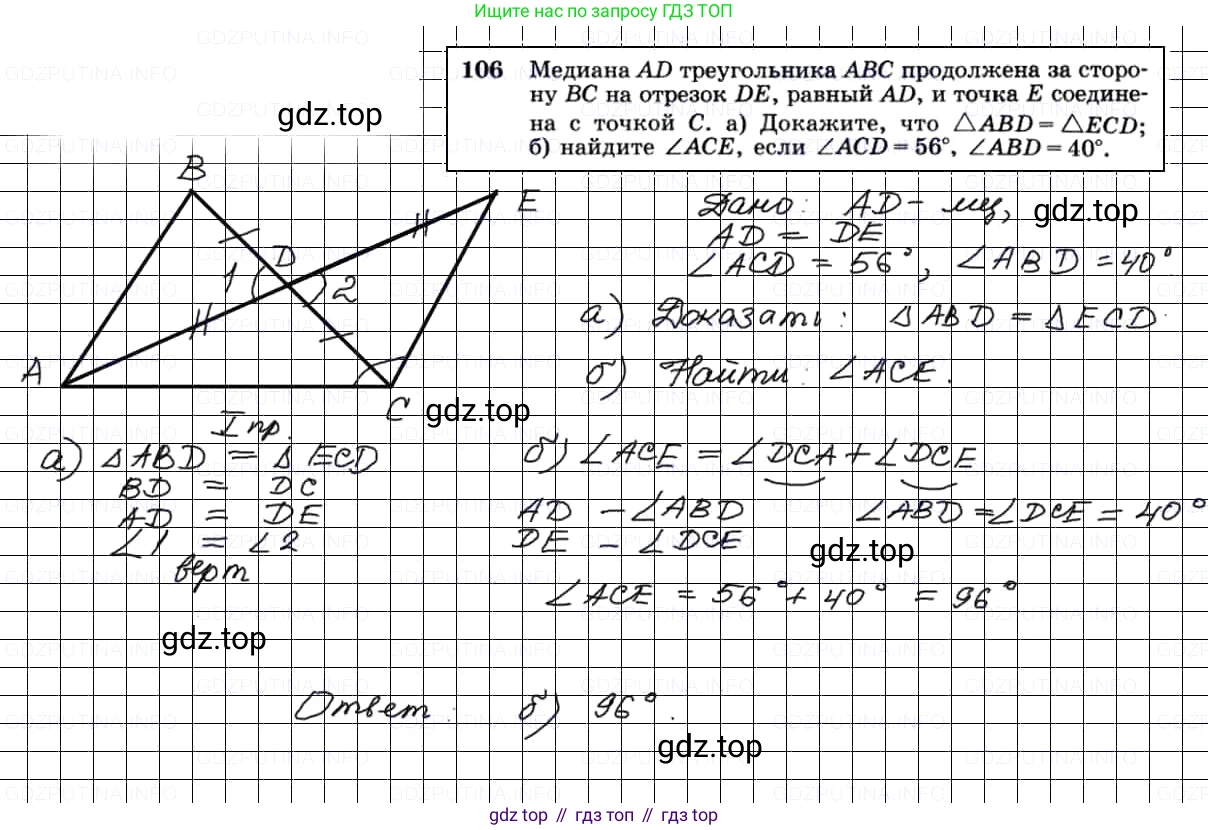 Ищите нас по запросу ГДЗ ТОП
106 Медиана AD треугольника ABC продолжена за сторо-
ну BC на отрезок DE, равный AD, и точка E соедине-
на с точкой C. а) Докажите, что △ABD = △ECD;
б) найдите ∠ACE, если ∠ACD = 56°, ∠ABD = 40°.
gdz.top
B
E
D
1
2
A
C
Дано: AD - мед,
gdz.top
AD = DE
∠ACD = 56°, ∠ABD = 40°
а) Доказать: △ABD = △ECD.
б) Найти: ∠ACE.
gdz.top
I пр.
а) △ABD = △ECD
BD = DC
AD = DE
∠1 = ∠2
верт
б) ∠ACE = ∠DCA + ∠DCE
AD - ∠ABD ∠ABD = ∠DCE = 40°
DE - ∠DCE
gdz.top
∠ACE = 56° + 40° = 96°
gdz.top
Ответ: б) 96°.
gdz.top
gdz top // гдз топ // gdz top